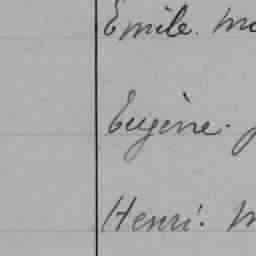 Emile. M
Eugène.
Henri. M